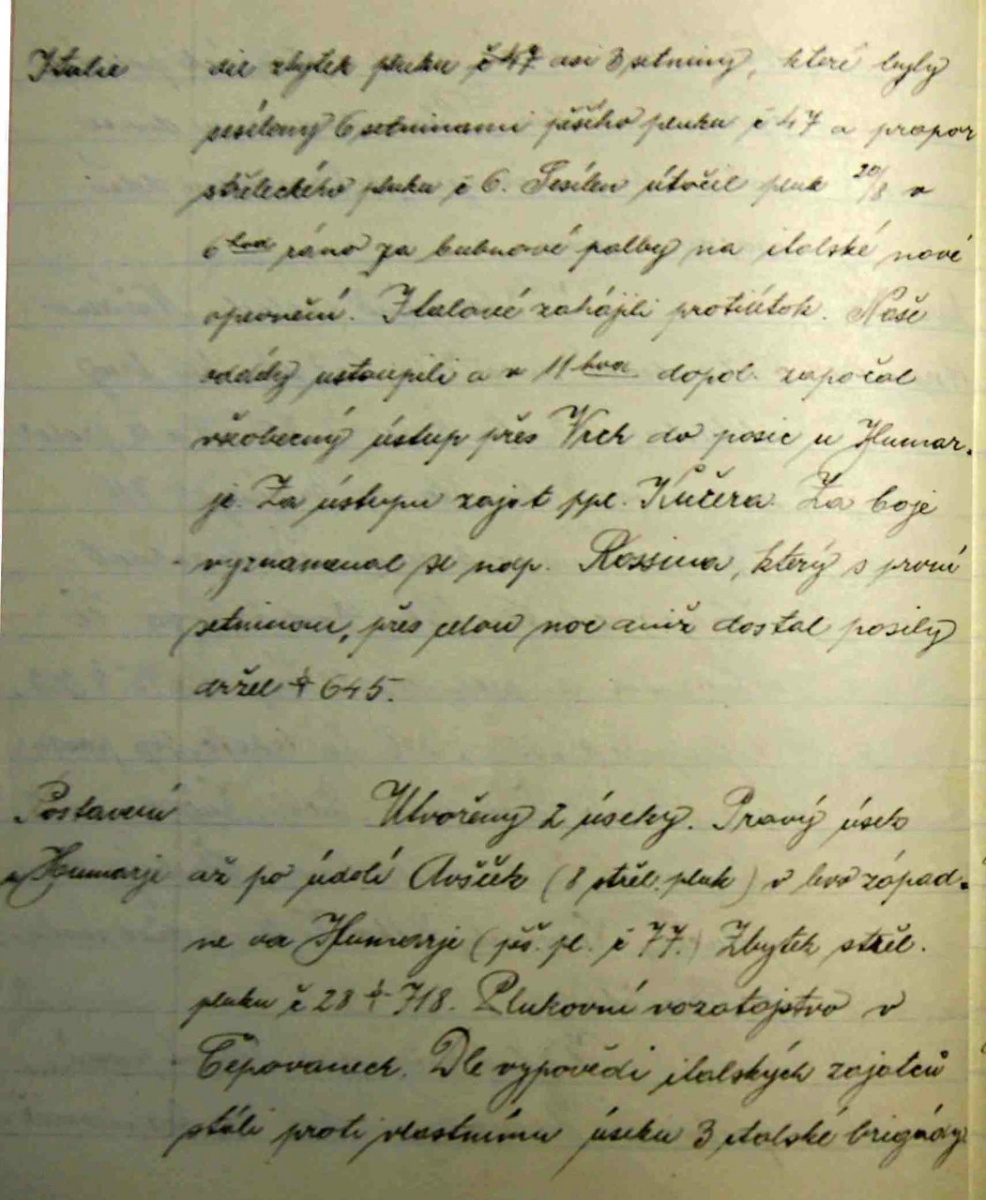 Italie die zbytek pluku č 47 asi 3 setniny, které byly
sesíleny 6 setninami pěšího pluku č 47 a prapor
střeleckého pluku č 6. Sesílen útočil pluk 20/8 v
6 hod ráno za bubnové palby na italské nové
opevnění. Italové zahájili protiútok. Naše
oddíly ustoupili a v 11 hod dopol. započal
všeobecný ústup přes Vrch do posic u Humar-
je. Za ústupu zajat ppl. Kučera. Za boje
vyznamenal se ndp. Rossina, který s první
setninou, přes celou noc aniž dostal posily
držel 645.
Postavení Utvořeny 2 úseky. Pravý úsek
u Humarje až po údolí Avšček (8 střel. pluk) v levo západ-
ne od Humarje (pěš. pl. č 77.) Zbytek střel.
pluku č 28 718. Plukovní vozatajstvo v
Čepovanech. Dle vypovědi italských zajatců
stáli proti vlastnímu úseku 3 italské brigády